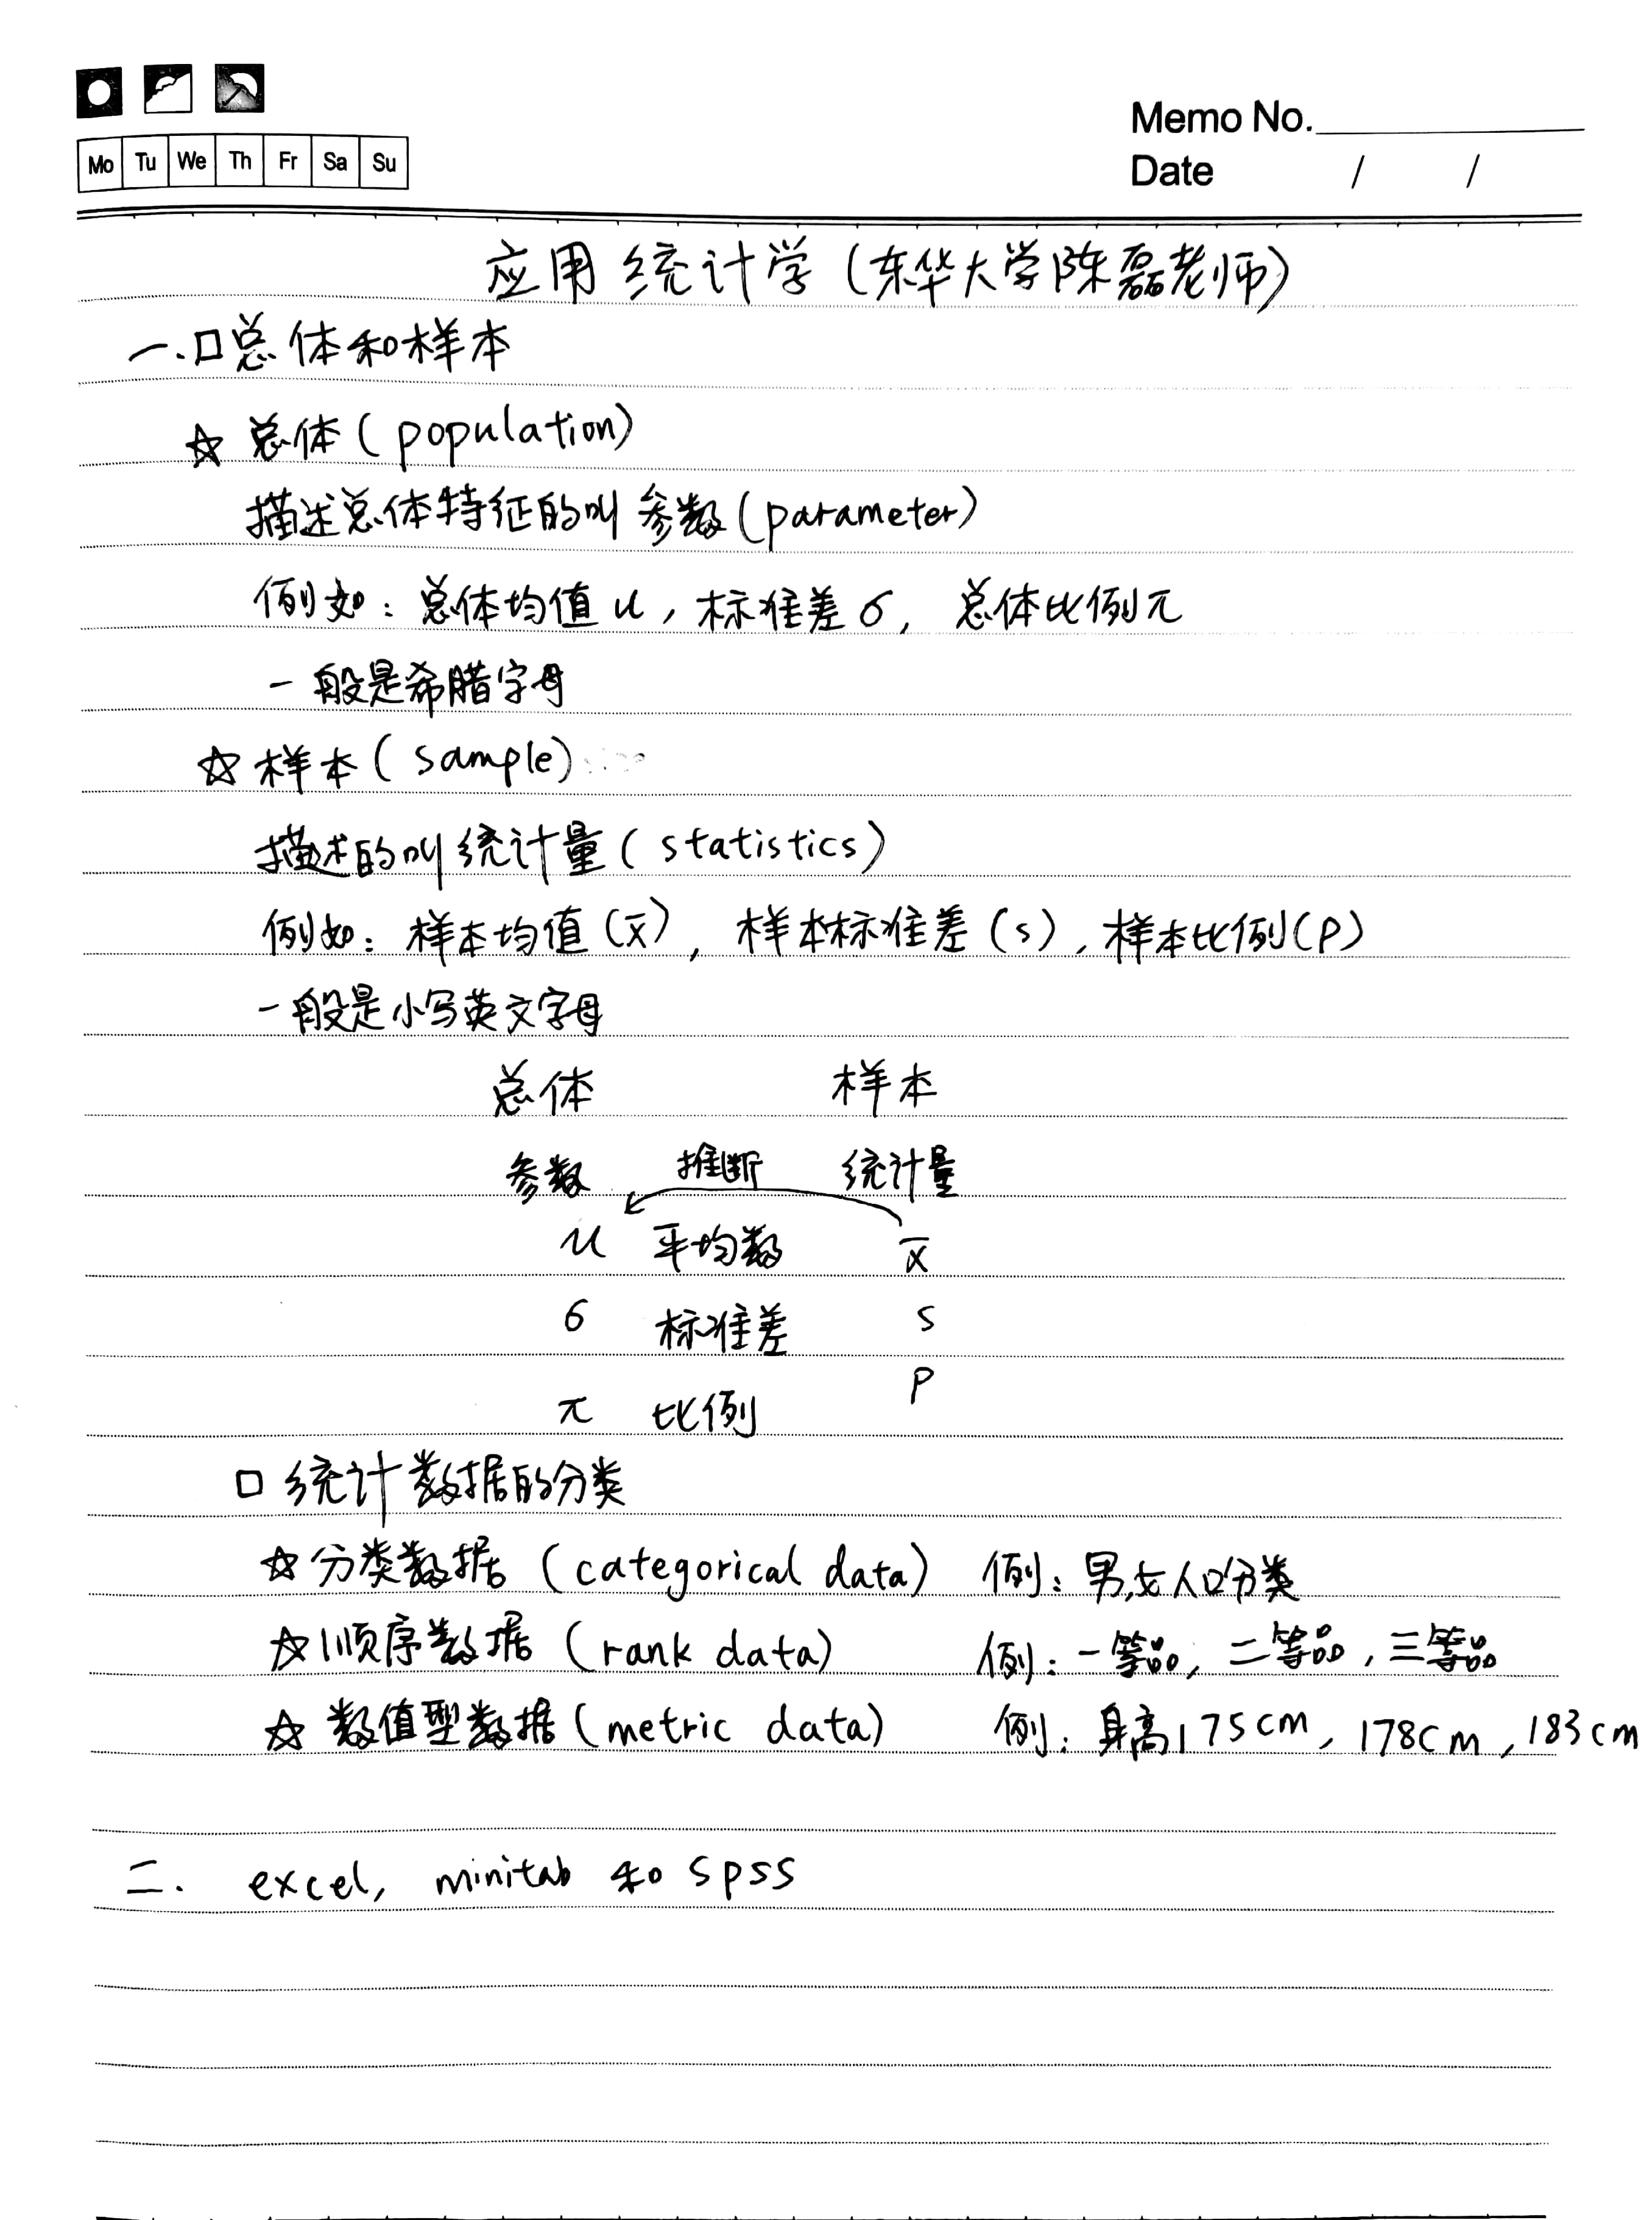 Memo No.
Mo Tu We Th Fr Sa Su
Date / /
应用统计学(东华大学陈磊老师)
一.口总体和样本
☆ 总体(population)
描述总体特征的叫参数(parameter)
例如:总体均值u,标准差σ,总体比例π
一般是希腊字母
☆ 样本(sample)
描述的叫统计量(statistics)
例如:样本均值(x̄),样本标准差(s),样本比例(p)
一般是小写英文字母
总体 样本
参数 推断 统计量
u 平均数 x̄
6 标准差 s
π 比例 p
口 统计数据的分类
☆分类数据(categorical data) 例:男,女人口分类
☆顺序数据(rank data) 例:一等品,二等品,三等品
☆ 数值型数据(metric data) 例:身高175cm,178cm,183cm
二. excel, minitab 和 spss